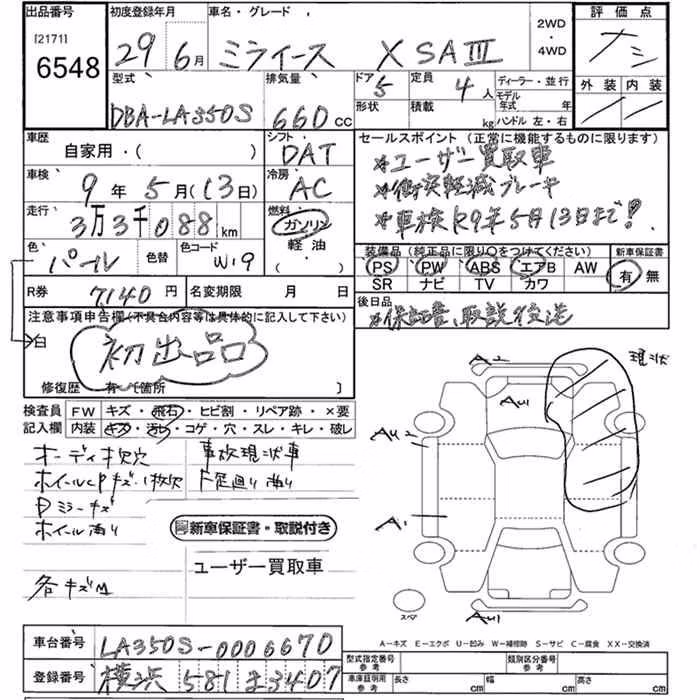 出品番号
[2171]
6548
初度登録年月
29 6月
車名・グレード
ミライース X SAⅢ
2WD
・
4WD
評価点
ナシ
外装 内装
型式
DBA-LA350S
排気量
660 CC
ドア
5
形状
定員
4人
積載
kg
ディーラー・並行
モデル年式 年
ハンドル 左・右
車歴
自家用・( )
シフト
DAT
車検
9年5月(13日)
冷房
AC
走行
3万3千088km
燃料
ガソリン
軽油
( )
色
パール
色替
色コード
W19
セールスポイント(正常に機能するものに限ります)
*ユーザー買取車
*衝突軽減ブレーキ
*車検R9年5月13日まで!
装備品(純正品に限り○をつけてください)
PS PW ABS エアB AW
SR ナビ TV カワ
新車保証書
有 無
R券
7140円
名変期限 月 日
後日品
*保証書、取説後送
注意事項申告欄(不具合内容等は具体的に記入して下さい)
白
初出品
修復歴 有・〔箇所 〕
検査員記入欄
FW キズ・飛石・ヒビ割・リペア跡・×要
内装 キズ・汚れ・コゲ・穴・スレ・キレ・破レ
オーディオ欠穴
ホイールCPキズ・1枚欠
Pミラーキズ
ホイール有り
各キズM
事故現状車
下廻り有り
新車保証書・取説付き
ユーザー買取車
現状
A2
AU1
AU2
A1
AU1
スペア
A-キズ E-エクボ U-凹み W-補修跡 S-サビ C-腐食 XX-交換済
車台番号
LA350S-0006670
登録番号
横浜 581 ま3407
型式指定番号
参考
類別区分番号
参考
車庫証明用
参考
長さ cm
幅 cm
高さ cm